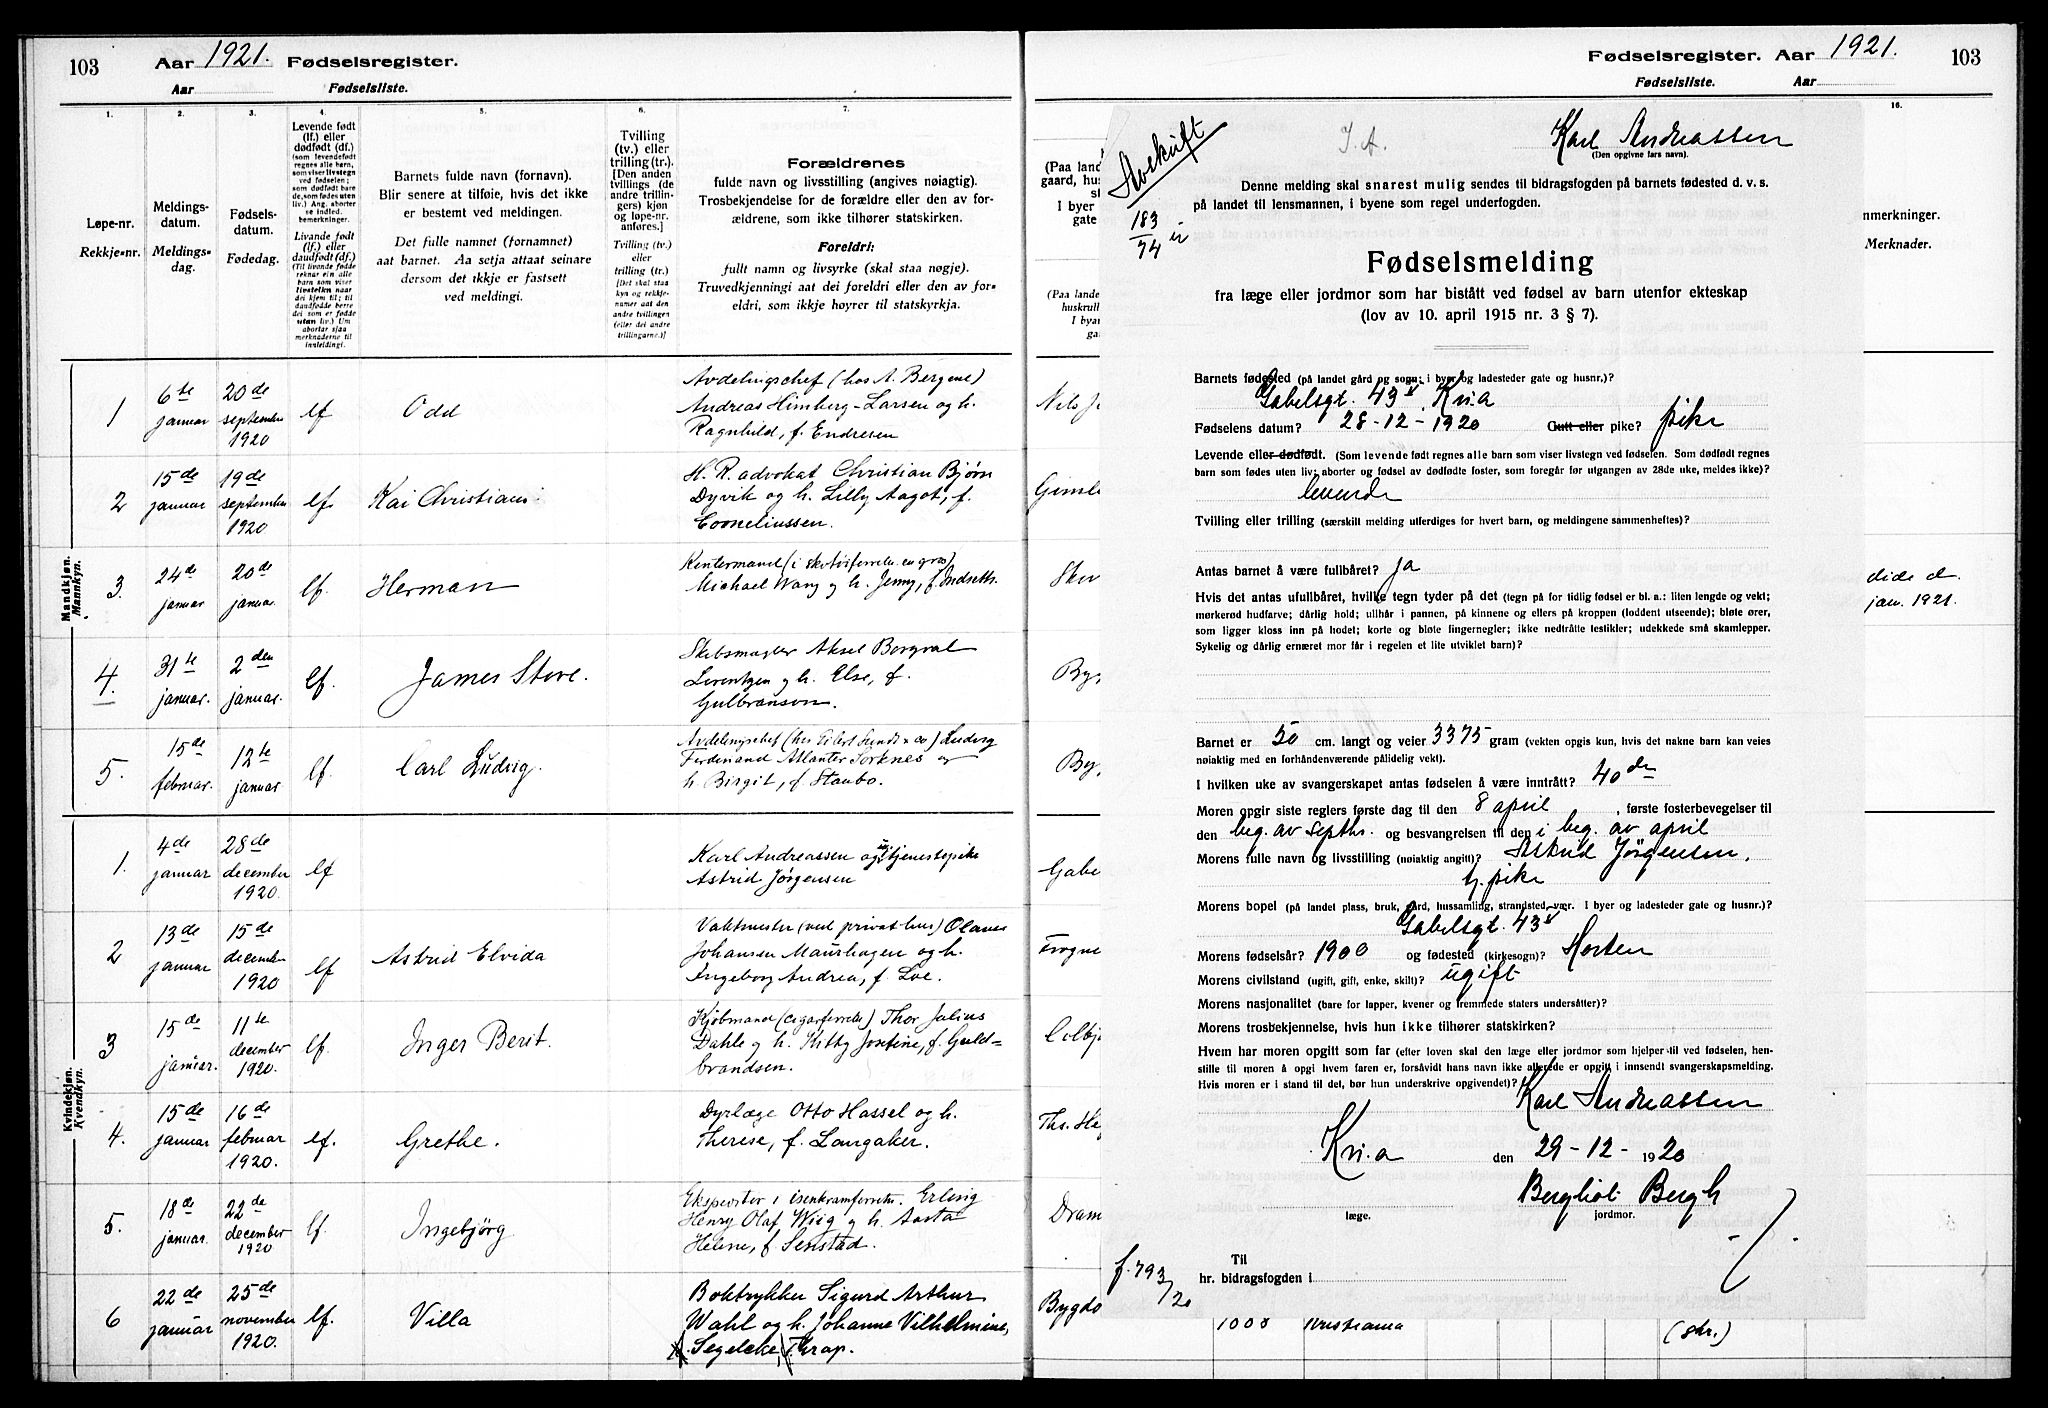 103
Aar 1921. Fødselsregister.
Aar Fødselsliste.
1. 2. 3. 4. 5. 6. 7.
Løpe-nr.
Rekkje-nr.
Meldings-
datum.
Meldings-
dag.
Fødsels-
datum.
Fødedag.
Levende født
(lf.) eller
dødfødt (df.)
(som levendefødt
regnes alle barn,
som viser livstegn
ved fødselen;
som dødfødt bare
de, som fødes uten
liv.) Ang. aborter
se indled.
bemerkninger.
Livande født
(lf.) eller
daudfødt (df.)
(Til livande fødde
reknar ein alle
barn som viser
livsteikn naar
dei kjem til; til
daudfødde berre
dei som er fødde
utan liv.) Um
abortar sjaa
merknaderne til
innleidingi.
Barnets fulde navn (fornavn).
Blir senere at tilføie, hvis det ikke
er bestemt ved meldingen.
Det fulle namnet (fornamnet)
aat barnet. Aa setja attaat seinare
dersom det ikkje er fastsett
ved meldingi.
Tvilling
(tv.) eller
trilling (tr.).
[Den anden
tvillings (de
andre trillin-
gers) kjøn
og løpe-nr.
anføres.]
Tvilling (tv.)
eller
trilling (tr.)
[Det skal staa
kyn og rekkje-
numer aat den
andre tvillingen
(eller dei andre
trillingarne.)]
Forældrenes
fulde navn og livsstilling (angives nøiagtig).
Trosbekjendelse for de forældre eller den av for-
ældrene, som ikke tilhører statskirken.
Foreldri:
fullt namn og livsyrke (skal staa nøgje).
Truvedkjenningi aat dei foreldri eller den av for-
eldri, som ikkje høyrer til statskyrkja.
Mandkjøn.
Mannkyn.
1 6te januar 20de september 1920 lf Odd
Avdelingschef (hos A. Bergene)
Andreas Himberg-Larsen og h.
Ragnhild, f. Endresen
2 15de januar 19de september 1920 lf. Kai Christian
H. R. advokat Christian Bjørn
Dyvik og h. Lilly Aagot, f.
Corneliussen.
3. 24de januar. 20de januar. lf. Herman
Michael Wang og h. Jenny, f. Indseth.
4. 31te januar. 2den januar. lf. James Stove.
Skibsmægler Aksel Borgval
Lorentzen og h. Else, f.
Gulbranson.
5. 15de februar. 12te januar lf. Carl Ludvig.
Avdelingschef (hos Eilert Sundt & co) Ludvig
Ferdinand Atlanter Torknes og
h. Birgit, f. Staubo.
Kvindekjøn.
Kvendkyn.
1. 4de januar 28de december 1920. lf
Karl Andreassen og ug. tjenestepike
Astrid Jørgensen
2 13de januar 15de december 1920 lf Astrid Elvida
Vaktmester (ved privat hus) Olaves
Johansen Maurhagen og h.
Ingeborg Andrea, f. Loe.
3 15de januar. 11te december 1920. lf. Inger Berit.
Kjøbmand (cigarforretn) Thor Julius
Dahle og h. Kitty Josefine, f. Guld-
brandsen.
4. 15de januar 16de februar 1920. lf. Grethe.
Dyrlæge Otto Hassel og h.
Therese, f. Langaker.
5. 18de januar. 22de december 1920 lf. Ingebjörg
Ekspeditør i isenkramforretn. Erling
Henry Olaf Wiig og h. Aasta
Helene, f. Senstad.
6 22de januar 25de november 1920. lf. Villa
Boktrykker Sigurd Arthur
Wahl og h. Johanne Vilhelmine,
Segelcke, f. Thrap.
Fødselsregister. Aar 1921. 103
Fødselsliste. Aar
16.
(Paa land
gaard, hus
I byer
gate
(Paa lande
huskrull
I byar
ga
nmerkninger.
Merknader.
Nils J
Gimle
Skov
Byg
Byg
Gabe
Frogne
Colbj
Ths. He
Dram
Bygdo
dide d.
jan. 1921.
Avskrift
183
74
J. A.
Karl Andreassen
(Den opgivne fars navn).
Denne melding skal snarest mulig sendes til bidragsfogden på barnets fødested d. v. s.
på landet til lensmannen, i byene som regel underfogden.
Fødselsmelding
fra læge eller jordmor som har bistått ved fødsel av barn utenfor ekteskap
(lov av 10. april 1915 nr. 3 § 7).
Barnets fødested (på landet gård og sogn; i byer og ladesteder gate og husnr.)?
Gabelsgt. 43 V, Kr.a
Fødselens datum? 28-12-1920 Gutt eller pike? pike
Levende eller dødfødt. (Som levende født regnes alle barn som viser livstegn ved fødselen. Som dødfødt regnes
barn som fødes uten liv; aborter og fødsel av dødfødte foster, som foregår før utgangen av 28de uke, meldes ikke)?
levende
Tvilling eller trilling (særskilt melding utferdiges for hvert barn, og meldingene sammenheftes)?
Antas barnet å være fullbåret? Ja
Hvis det antas ufullbåret, hvilke tegn tyder på det (tegn på for tidlig fødsel er bl. a.: liten lengde og vekt;
mørkerød hudfarve; dårlig hold; ullhår i pannen, på kinnene og ellers på kroppen (loddent utseende); bløte ører,
som ligger kloss inn på hodet; korte og bløte fingernegler; ikke nedtråtte testikler; udekkede små skamlepper.
Sykelig og dårlig ernæret mor får i regelen et lite utviklet barn)?
Barnet er 50 cm. langt og veier 3375 gram (vekten opgis kun, hvis det nakne barn kan veies
nøiaktig med en forhåndenværende pålidelig vekt).
I hvilken uke av svangerskapet antas fødselen å være inntrått? 40de
Moren opgir siste reglers første dag til den 8 april, første fosterbevegelser til
den beg. av septbr. og besvangrelsen til den i beg. av april
Morens fulle navn og livsstilling (nøiaktig angitt)? Astrid Jörgensen,
tj. pike
Morens bopel (på landet plass, bruk, gård, hussamling, strandsted, vær. I byer og ladesteder gate og husnr.)?
Gabelsgt. 43 V
Morens fødselsår? 1900 og fødested (kirkesogn)? Horten
Morens civilstand (ugift, gift, enke, skilt)? ugift
Morens nasjonalitet (bare for lapper, kvener og fremmede staters undersåtter)?
Morens trosbekjennelse, hvis hun ikke tilhører statskirken?
Hvem har moren opgitt som far (efter loven skal den læge eller jordmor som hjelper til ved fødselen, hen-
stille til moren å opgi hvem faren er, forsåvidt hans navn ikke allerede er opgitt i innsendt svangerskapsmelding.
Hvis moren er i stand til det, bør hun underskrive opgivendet)?
Karl Andreassen
Kr.a den 29-12-1920
Bergliot Bergh
læge. jordmor.
Til
hr. bidragsfogden i
f. 793/20
1000 Kristiania (skr.)